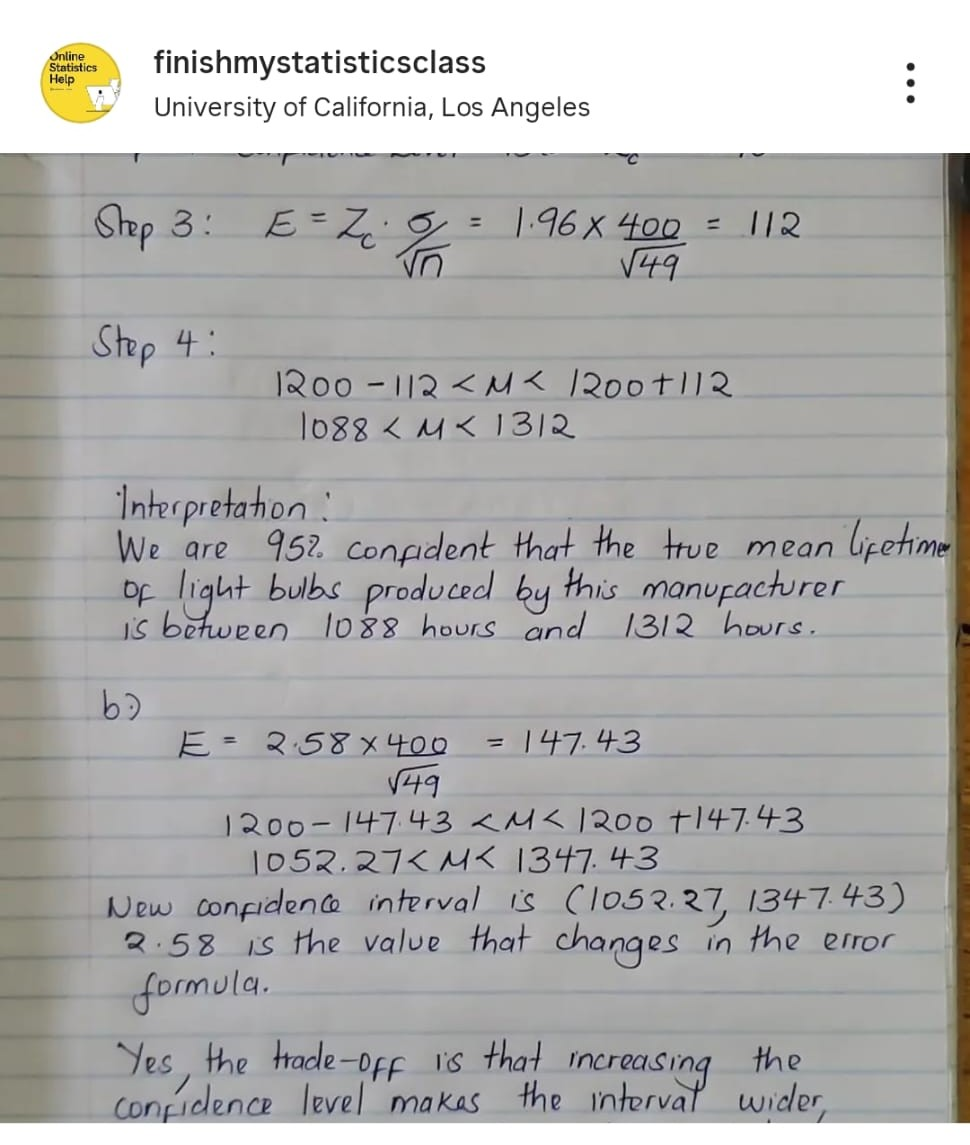 Online
Statistics
Help
finishmystatisticsclass
University of California, Los Angeles
Step 3: E = Zc · σ/√n = 1.96 × 400/√49 = 112
Step 4:
1200 - 112 < M < 1200 + 112
1088 < M < 1312
Interpretation:
We are 95% confident that the true mean lifetime
of light bulbs produced by this manufacturer
is between 1088 hours and 1312 hours.
b)
E = 2.58 × 400/√49 = 147.43
1200 - 147.43 < M < 1200 + 147.43
1052.27 < M < 1347.43
New confidence interval is (1052.27, 1347.43)
2.58 is the value that changes in the error
formula.
Yes, the trade-off is that increasing the
confidence level makes the interval wider,